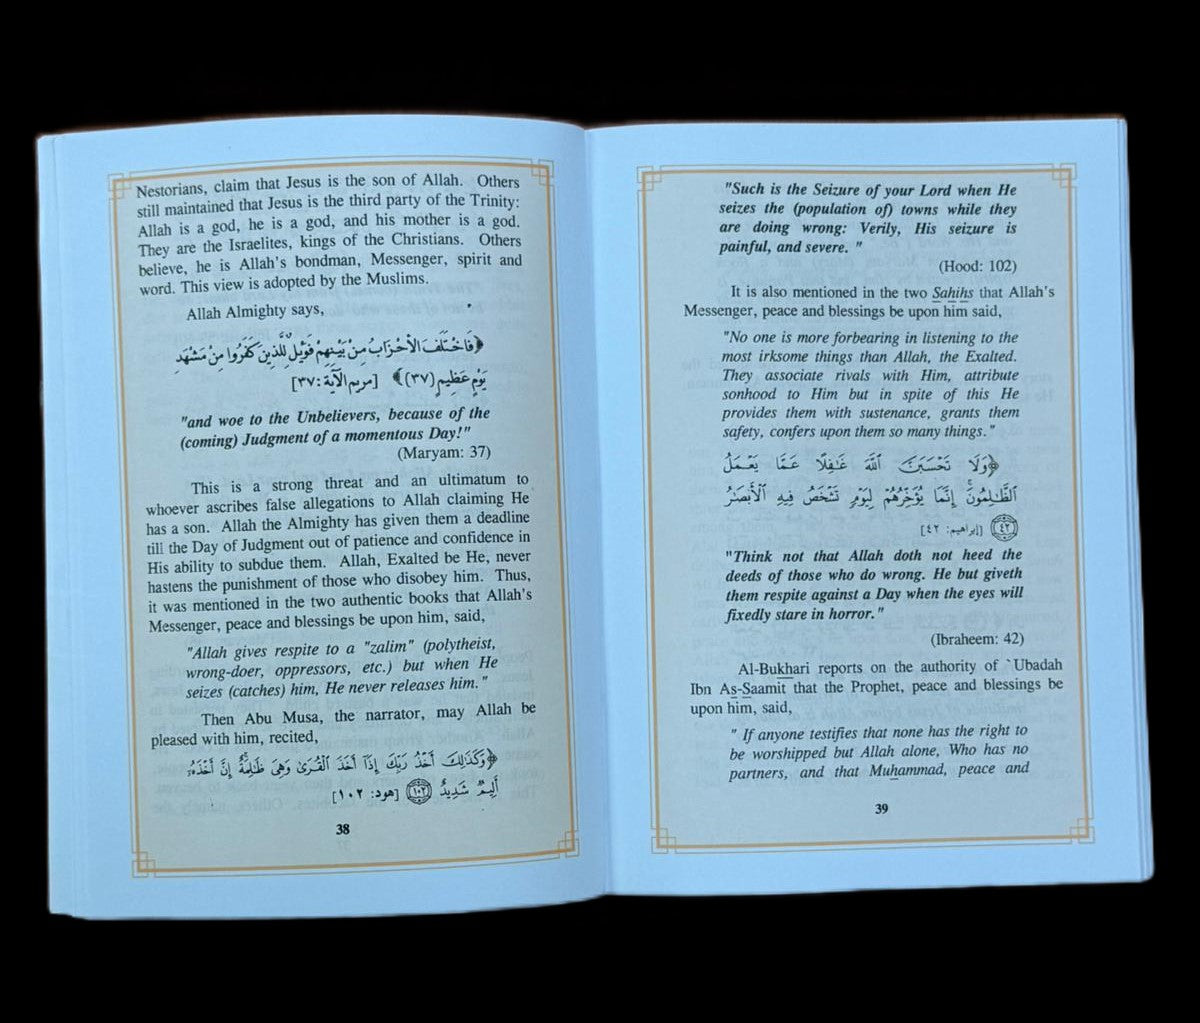 Nestorians, claim that Jesus is the son of Allah. Others
still maintained that Jesus is the third party of the Trinity:
Allah is a god, he is a god, and his mother is a god.
They are the Israelites, kings of the Christians. Others
believe, he is Allah's bondman, Messenger, spirit and
word. This view is adopted by the Muslims.
Allah Almighty says,
﴿فَاخْتَلَفَ الْأَحْزَابُ مِنْ بَيْنِهِمْ فَوَيْلٌ لِلَّذِينَ كَفَرُوا مِنْ مَشْهَدِ
يَوْمٍ عَظِيمٍ (٣٧)﴾ [مريم الآية: ٣٧]
"and woe to the Unbelievers, because of the
(coming) Judgment of a momentous Day!"
(Maryam: 37)
This is a strong threat and an ultimatum to
whoever ascribes false allegations to Allah claiming He
has a son. Allah the Almighty has given them a deadline
till the Day of Judgment out of patience and confidence in
His ability to subdue them. Allah, Exalted be He, never
hastens the punishment of those who disobey him. Thus,
it was mentioned in the two authentic books that Allah's
Messenger, peace and blessings be upon him, said,
"Allah gives respite to a "zalim" (polytheist,
wrong-doer, oppressors, etc.) but when He
seizes (catches) him, He never releases him."
Then Abu Musa, the narrator, may Allah be
pleased with him, recited,
﴿وَكَذَٰلِكَ أَخْذُ رَبِّكَ إِذَآ أَخَذَ ٱلْقُرَىٰ وَهِىَ ظَـٰلِمَةٌ ۚ إِنَّ أَخْذَهُۥٓ
أَلِيمٌ شَدِيدٌ ١٠٢ [هود: ١٠٢]
38
"Such is the Seizure of your Lord when He
seizes the (population of) towns while they
are doing wrong: Verily, His seizure is
painful, and severe. "
(Hood: 102)
It is also mentioned in the two Sahihs that Allah's
Messenger, peace and blessings be upon him said,
"No one is more forbearing in listening to the
most irksome things than Allah, the Exalted.
They associate rivals with Him, attribute
sonhood to Him but in spite of this He
provides them with sustenance, grants them
safety, confers upon them so many things."
﴿وَلَا تَحْسَبَنَّ ٱللَّهَ غَـٰفِلًا عَمَّا يَعْمَلُ
ٱلظَّـٰلِمُونَ ۚ إِنَّمَا يُؤَخِّرُهُمْ لِيَوْمٍ تَشْخَصُ فِيهِ ٱلْأَبْصَـٰرُ
٤٢ [إبراهيم: ٤٢]
"Think not that Allah doth not heed the
deeds of those who do wrong. He but giveth
them respite against a Day when the eyes will
fixedly stare in horror."
(Ibraheem: 42)
Al-Bukhari reports on the authority of `Ubadah
Ibn As-Saamit that the Prophet, peace and blessings be
upon him, said,
" If anyone testifies that none has the right to
be worshipped but Allah alone, Who has no
partners, and that Muhammad, peace and
39